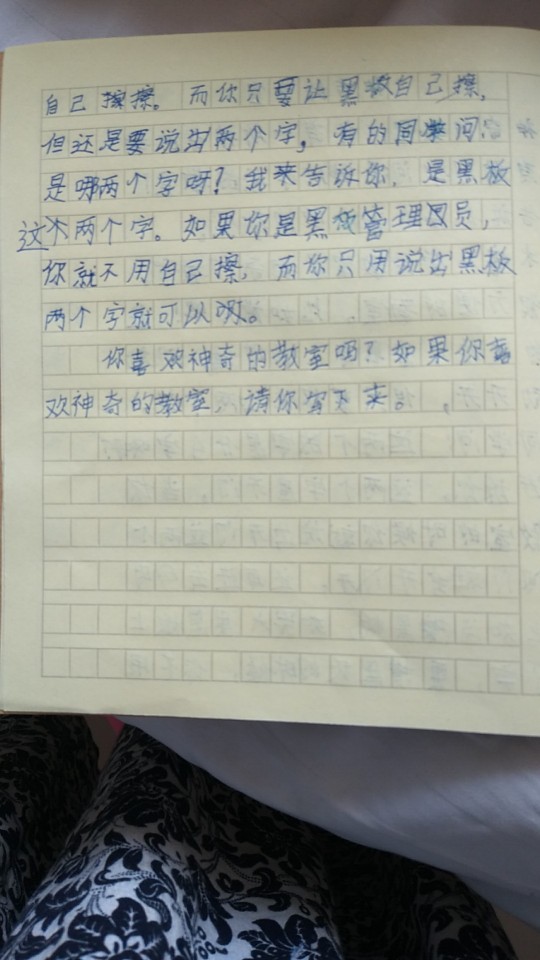 自己擦擦。而你只要让黑板自己擦,
但还是要说出两个字,有的同学问:
是哪两个字呀?我来告诉你,是黑板
这两个字。如果你是黑板管理员,
你就不用自己擦,而你只用说出黑板
两个字就可以啦。
你喜欢神奇的教室吗?如果你喜
欢神奇的教室,请你写下来。